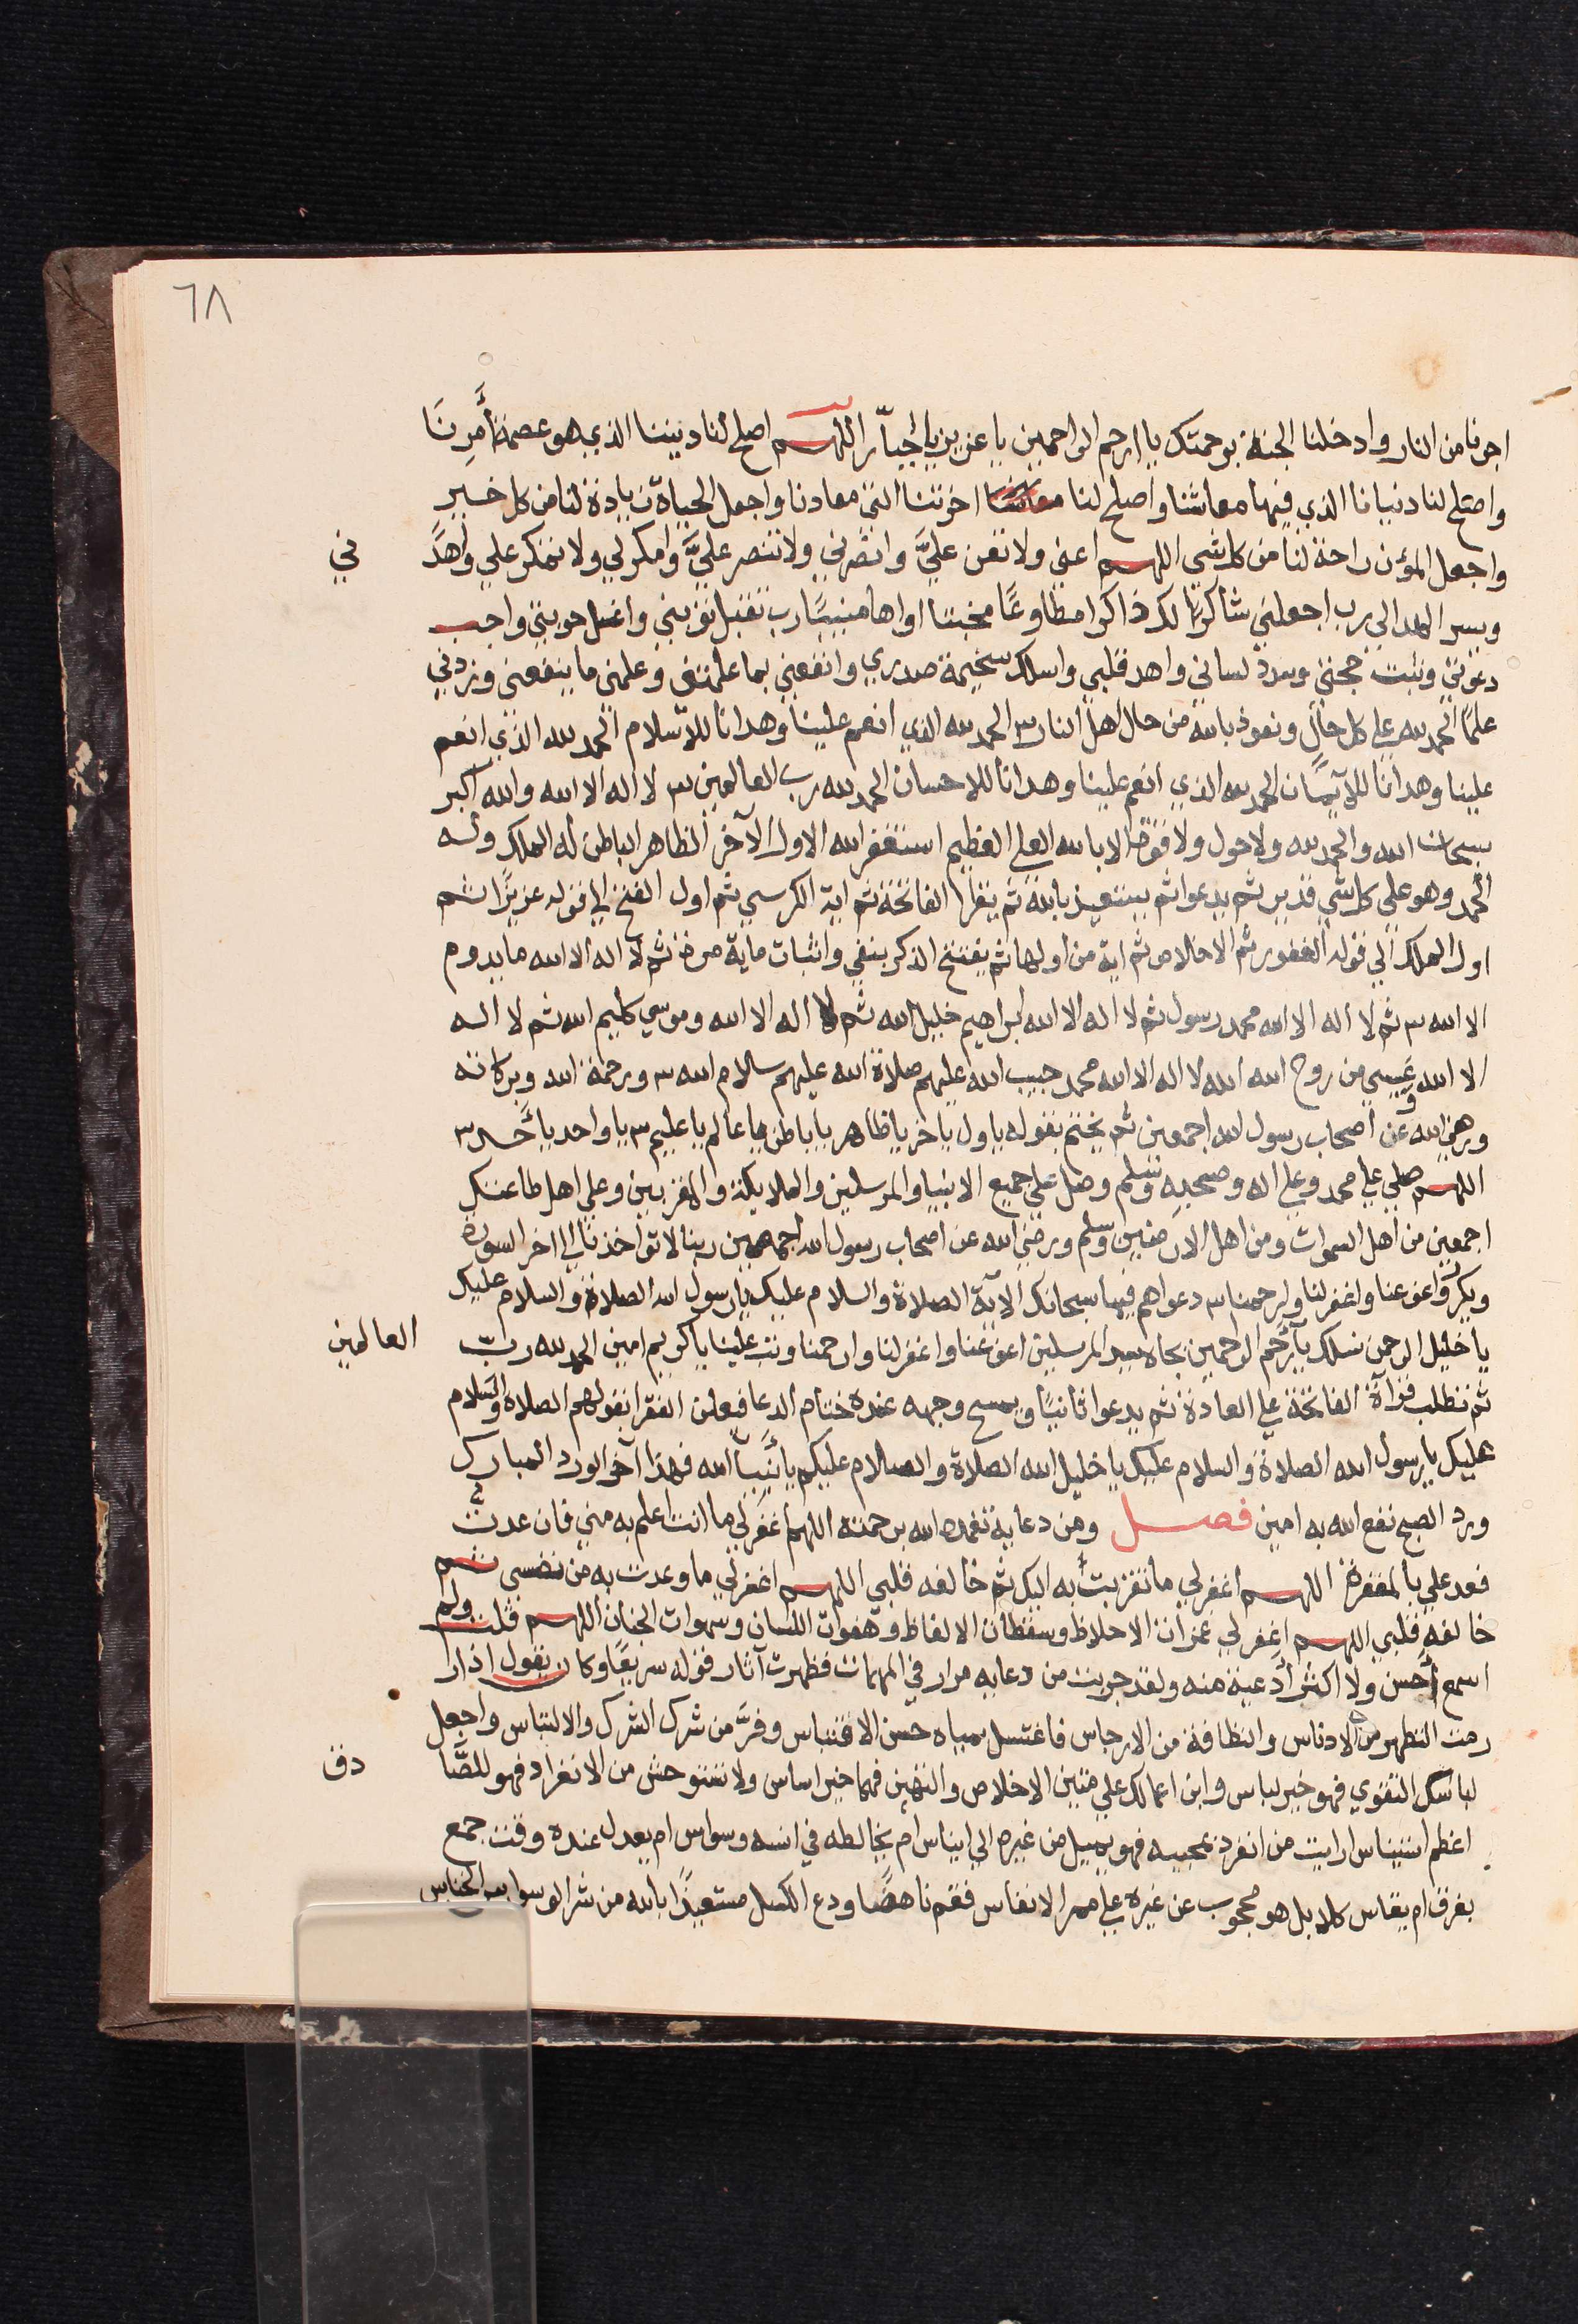 ٦٨
اجرنا من النار وادخلنا الجنة برحمتك يا ارحم الراحمين يا عزيز يا جبار اللهم اصلح لنا ديننا الذي هو عصمة أمرنا
واصلح لنا دنيانا الذي فيها معاشنا واصلح لنا اخرتنا التي معادنا واجعل الحياة زيادة لنا من كل خير
واجعل الموت راحة لنا من كل شي اللهم اعني ولا تعن عليَّ وانصرني ولا تنصر عليَّ وامكر لي ولا تمكر علي واهد ني
ويسر الهدا لي رب اجعلني شاكرا لك ذاكرا مطاوعًا مخبتا اواها منيبًا رب تقبل توبتي واغسل حوبتي واجب
دعوتي وثبت حجتي وسدد لساني واهد قلبي واسلك سخيمة صدري وانفعني بما علمتني وعلمني ما ينفعني وزدني
علمًا الحمد لله علي كل حال ونعوذ بالله من حال اهل النار ٣ الحمد لله الذي انعم علينا وهدانا للاسلام الحمد لله الذي انعم
علينا وهدانا للايمان الحمد لله الذي انعم علينا وهدانا للاحسان الحمد لله رب العالمين ٣ لا اله الا الله والله اكبر
سبحان الله والحمد لله ولا حول ولا قوة الا بالله العلي العظيم استغفر الله الاول الآخر الظاهر الباطن له الملك وله
الحمد وهو علي كل شي قدير ثم يدعوا ثم يستعيذ بالله ثم يقرا الفاتحة ثم اية الكرسي ثم اول الفتح الي قوله عزيزًا ثم
اول الملك الي قوله الغفور ثم الاخلاص ثم اية من اولها ثم يفتتح الذكر بنفي واثبات ماية مرة ثم لا اله الا الله ما يدوم
الا الله ٣ ثم لا اله الا الله محمد رسول ثم لا اله الا الله ابراهيم خليل الله ثم لا اله الا الله وموسي كليم الله ثم لا اله
الا الله عيسي من روح الله الله لا اله الا الله محمد حبيب الله عليهم صلاة الله عليهم سلام الله ٣ ورحمة الله وبركاته
ورضي الله عن اصحاب رسول الله اجمعين ثم يختم بقوله ياول ياخر يا ظاهر يا باطن يا عالم يا عليم ٣ يا واحد يا أحد ٣
اللهم صلي علي محمد وعلي اله وصحبه وسلم وصل علي جميع الانبيا والمرسلين والملايكة والمقربين وعلي اهل طاعتك
اجمعين من اهل السموات ومن اهل الارضين وسلم ورضي الله عن اصحاب رسول الله اجمعين ربنا لا تواخذنا الي اخر السورة
ويكرر واعف عنا واغفر لنا وارحمنا ٣ دعواهم فيها سبحانك الاية الصلاة والسلام عليك يا رسول الله الصلاة والسلام عليك
يا خليل الرحمن نسلك يا رحم الرحمين بجاه سيد المرسلين اعف عنا واغفر لنا وارحمنا وتب علينا يا كريم امين الحمد لله رب العالمين
ثم تطلب قراة الفاتحة علي العادة ثم يدعوا ثانيًا ويمسح وجهه عنده ختام الدعا فيعلن الفقرا بقولهم الصلاة والسلام
عليك يا رسول الله الصلاة والسلام عليك يا خليل الله الصلاة والسلام عليكم يا نبيا الله فهذا آخر الورد المبارك
ورد الصبح نفع الله به امين فصل ومن دعايه تغمده الله برحمته اللهم اغفر لي ما انت اعلم به مني فان عدت
فعد علي بالمغفرة اللهم اغفر لي ما تقربت به اليك ثم خالفه قلبي اللهم اغفر لي ما وعدت به من نفسي ثم
خالفه قلبي اللهم اغفر لي غمزات الاحلاظ وسقطات الالفاظ وهفوات اللسان وسهوات الجنان اللهم قلت ولم
اسمع احسن ولا اكثر أدعية منه ولقد جربت من دعايه مرار في المهمات فظهرت آثار قوله سريعًا وكان يقول اذا را
رمت التطهر من الادناس والنظافة من الارجاس فاغتسل بمياه حسن الاقتباس وفرَّ من شرك الشرك والالتباس واجعل
لباسك التقوي فهو خير لباس وابن اعمالك علي متين الاخلاص واليقين فهما خير اساس ولا تستوحش من الانفراد فهو للصّا دق
اعظم استيناس ارايت من انفرد بمحبيه فهو يميل من غيره الي ايناس ام يخالطه في انسه وسواس ام يعدل عنده وقت جمع
بفرق ام يقاس كلا بل هو محجوب عن غيره علي ممر الانفاس فقم ناهضًا ودع الكسل مستعيذًا بالله من شر الوسواس الخناس